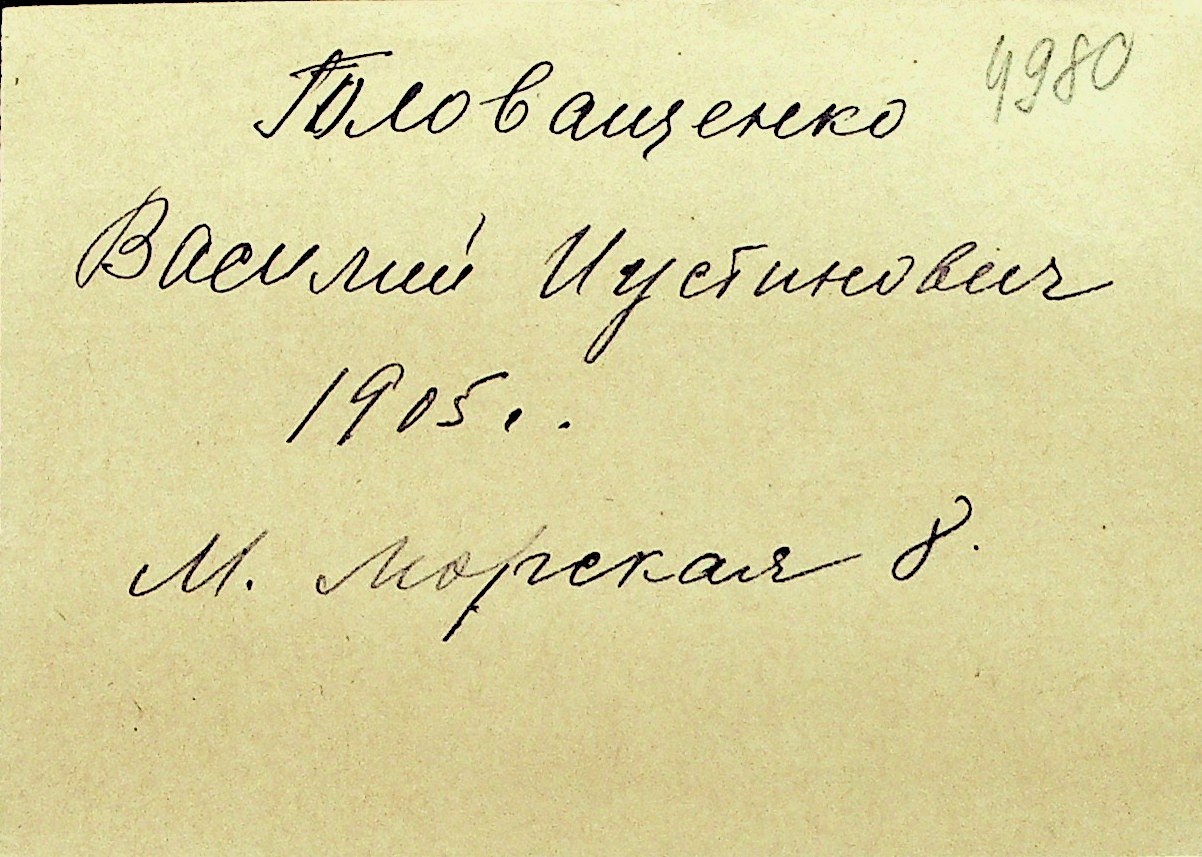 4980
Головащенко
Василий Иустинович
1905 г.
М. Морская 8.